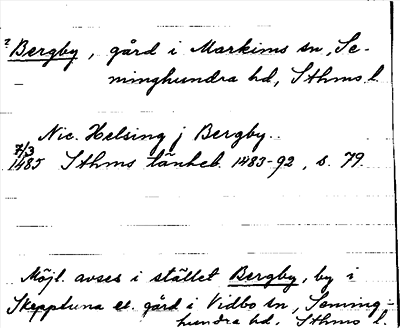 ? Bergby, gård i Markims sn, Se-
minghundra hd, Sthms l.
Nic. Helsing j Bergby..
7/3
1485 Sthms tänkeb. 1483-92, s. 79.
Möjl. avses i stället Bergby, by i
Skepptuna el. gård i Vidbo sn, Seming-
hundra hd, Sthms l.